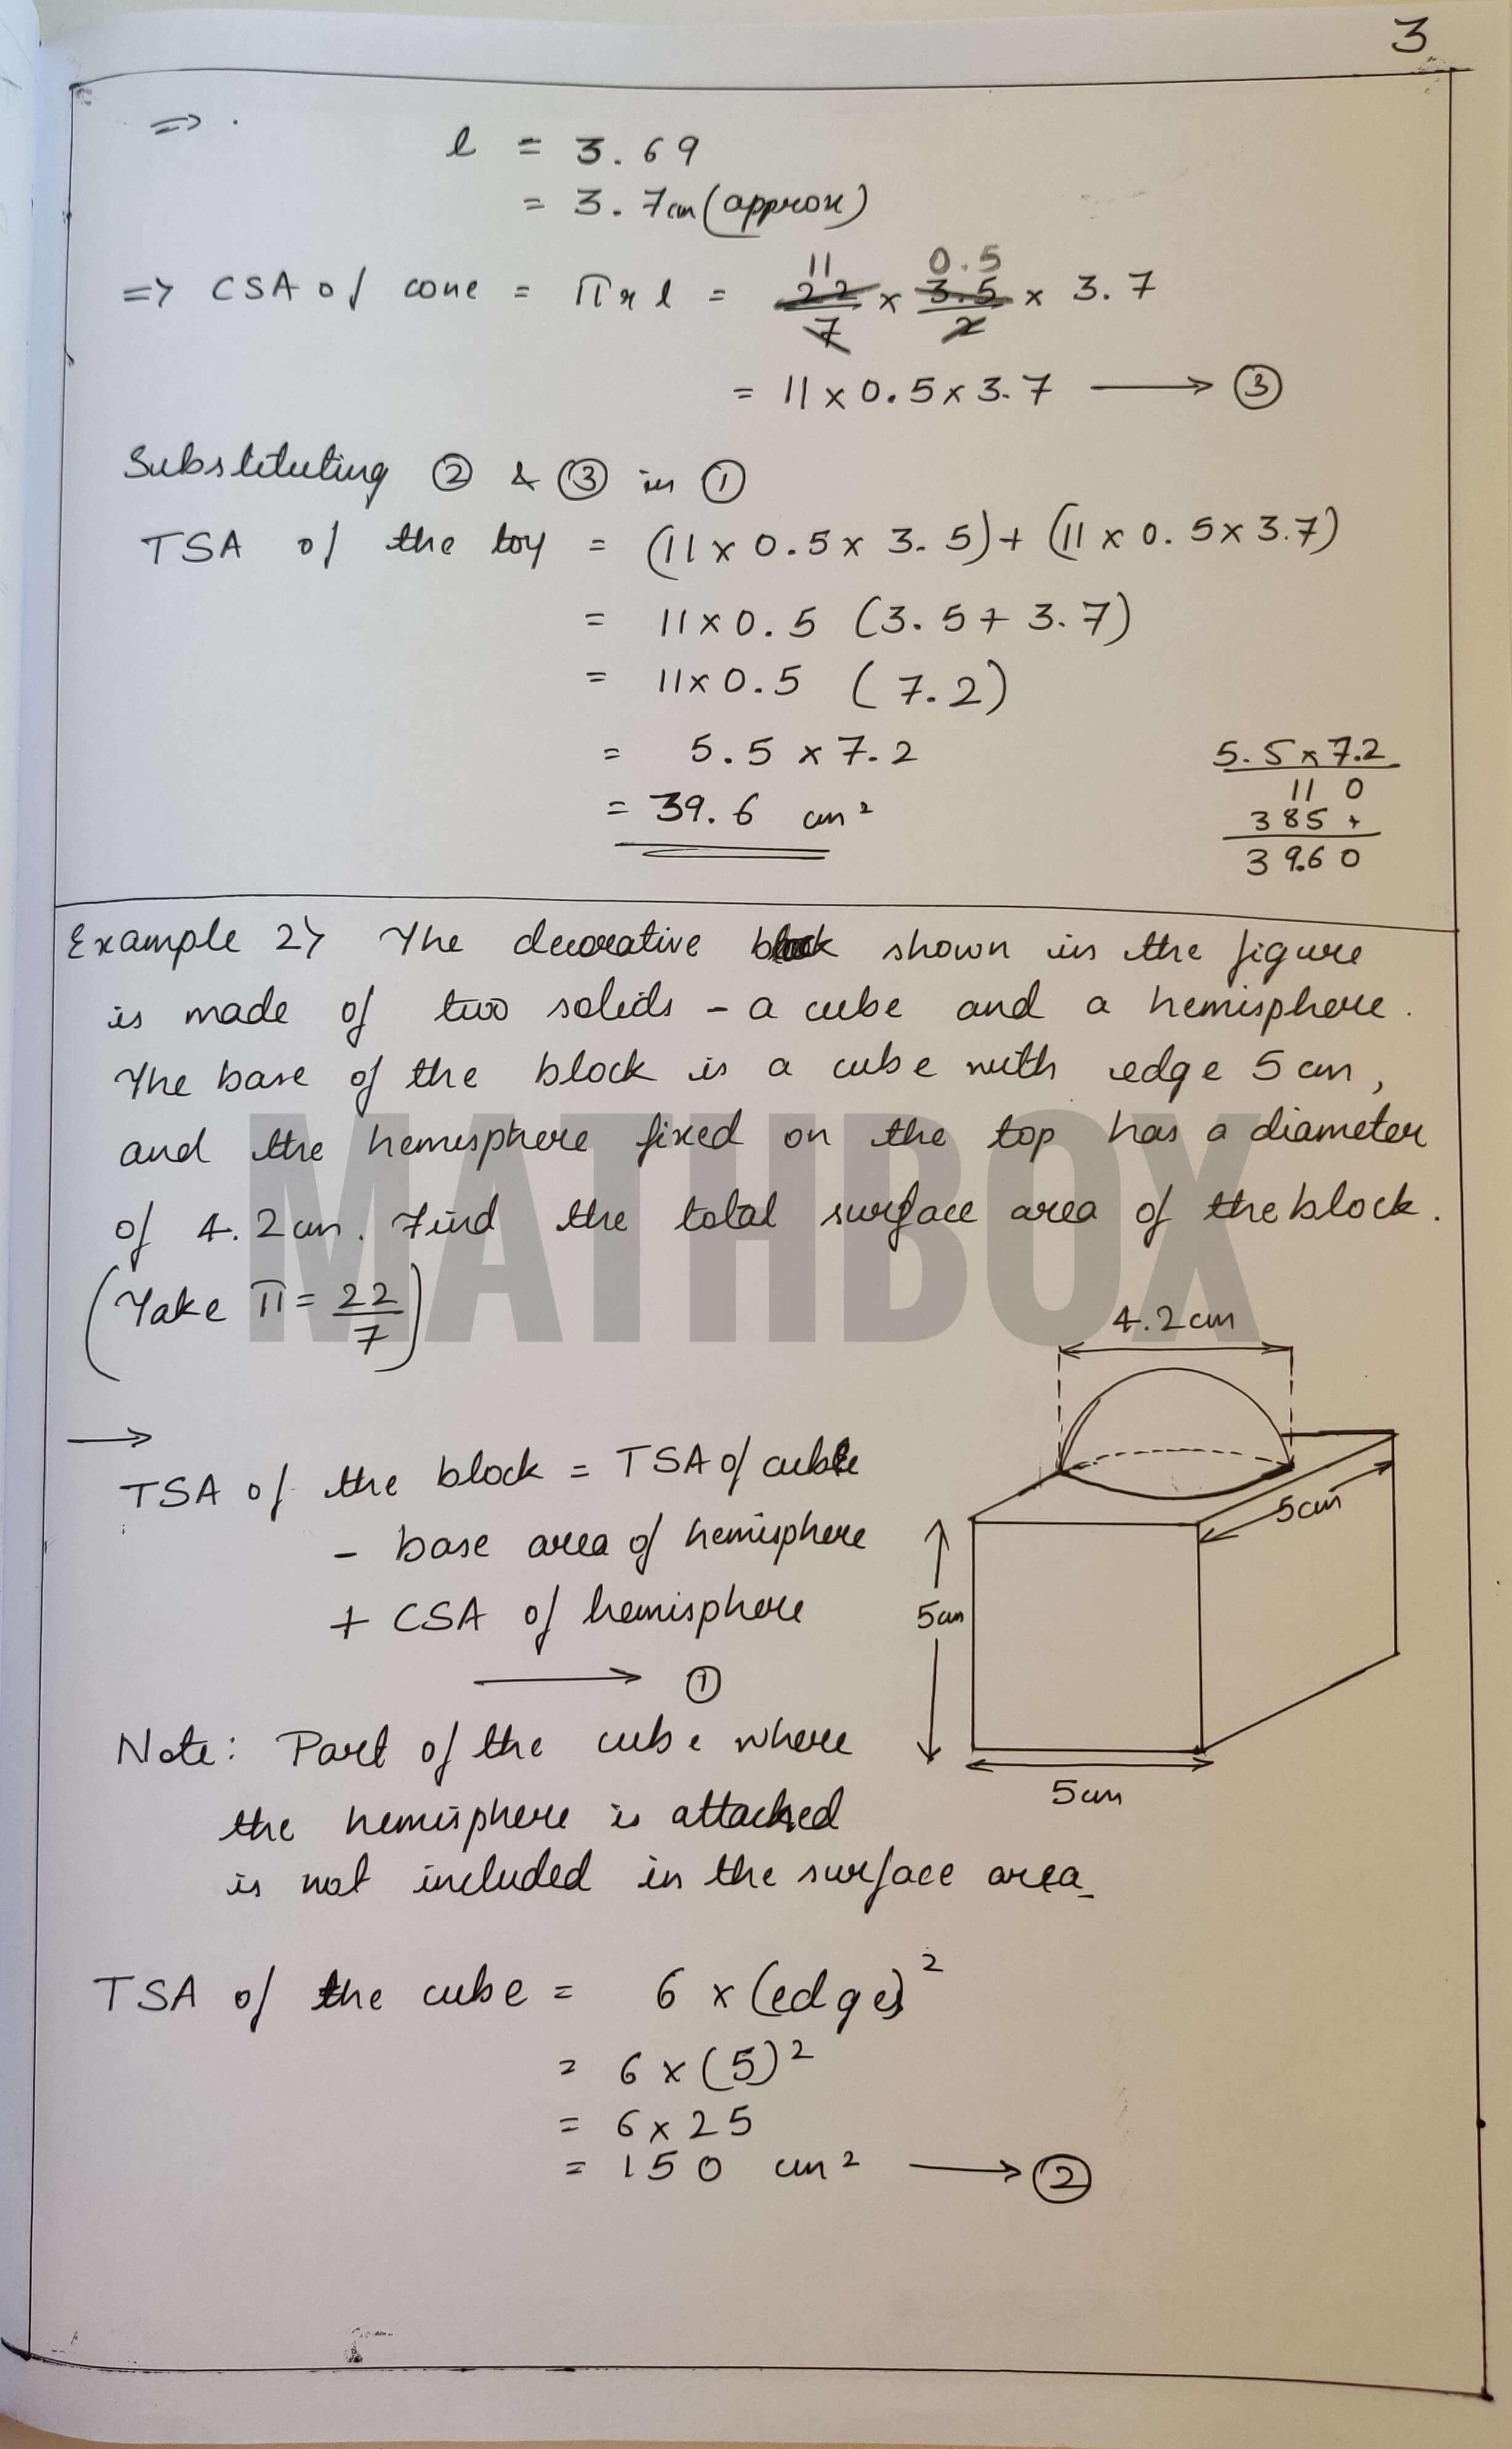 3
=> .
l = 3.69
= 3.7cm (approx)
=> CSA of cone = πrl = 22/7 × 3.5/2 × 3.7
11 0.5
= 11 × 0.5 × 3.7 ⟶ ③
Substituting ② & ③ in ①
TSA of the toy = (11 × 0.5 × 3.5) + (11 × 0.5 × 3.7)
= 11 × 0.5 (3.5 + 3.7)
= 11 × 0.5 (7.2)
= 5.5 × 7.2
= 39.6 cm²
5.5 × 7.2
11 0
385 +
39.60
Example 2> The decorative block shown in the figure
is made of two solids - a cube and a hemisphere.
The base of the block is a cube with edge 5 cm,
and the hemisphere fixed on the top has a diameter
of 4.2 cm. Find the total surface area of the block.
(Take π = 22/7)
MATHBOX
4.2cm
⟶
TSA of the block = TSA of cube
- base area of hemisphere
+ CSA of hemisphere
⟶ ①
5cm
5cm
5cm
Note: Part of the cube where
the hemisphere is attached
is not included in the surface area.
TSA of the cube = 6 × (edge)²
= 6 × (5)²
= 6 × 25
= 150 cm² ⟶ ②